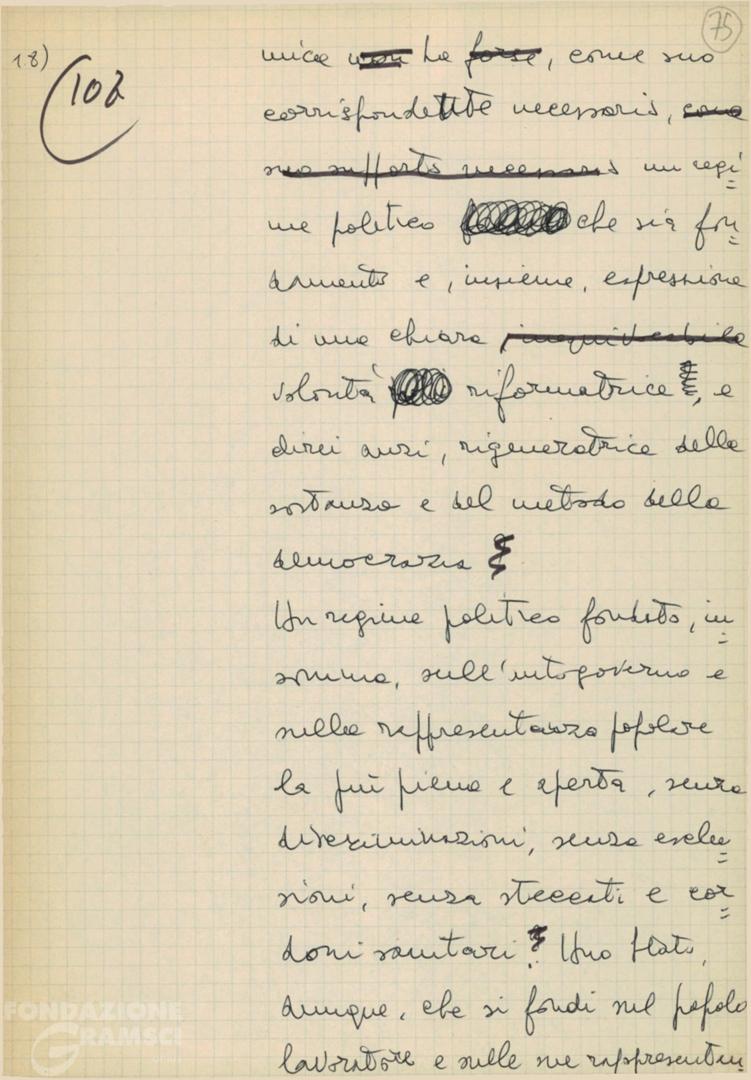 75
18)
102
mica non ha forse, come suo
corrispondette necessario, come
suo supporto necessario un regi=
me politico che sia fon=
damento e, insieme, espressione
di una chiara, inequivocabile
volontà riformatrice, e
direi anzi, rigeneratrice della
sostanza e del metodo della
democrazia
Un regime politico fondato, in=
somma, sull'autogoverno e
sulla rappresentanza popolare
la più piena e aperta, senza
discriminazioni, senza esclu=
sioni, senza steccati e cor=
doni sanitari. Uno Stato,
dunque, che si fondi sul popolo
lavoratore e sulle sue rappresentan=
FONDAZIONE
GRAMSCI